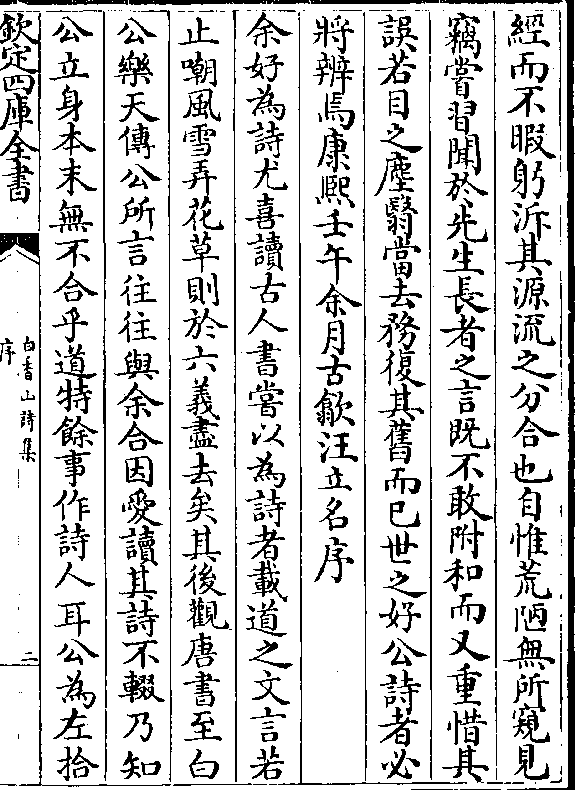 經而不暇躬泝其源流之分合也自惟荒陋無所窺見
竊嘗習聞於先生長者之言既不敢附和而又重惜其
誤若目之塵翳當去務復其舊而已世之好公詩者必
將辨焉康熙壬午余月古歙汪立名序
余好為詩尤喜讀古人書嘗以為詩者載道之文言若
止嘲風雪弄花草則於六義盡去矣其後觀唐書至白
公樂天傳公所言往往與余合因愛讀其詩不輟乃知
公立身本末無不合乎道特餘事作詩人耳公為左拾
欽定四庫全書
白香山詩集
序
二